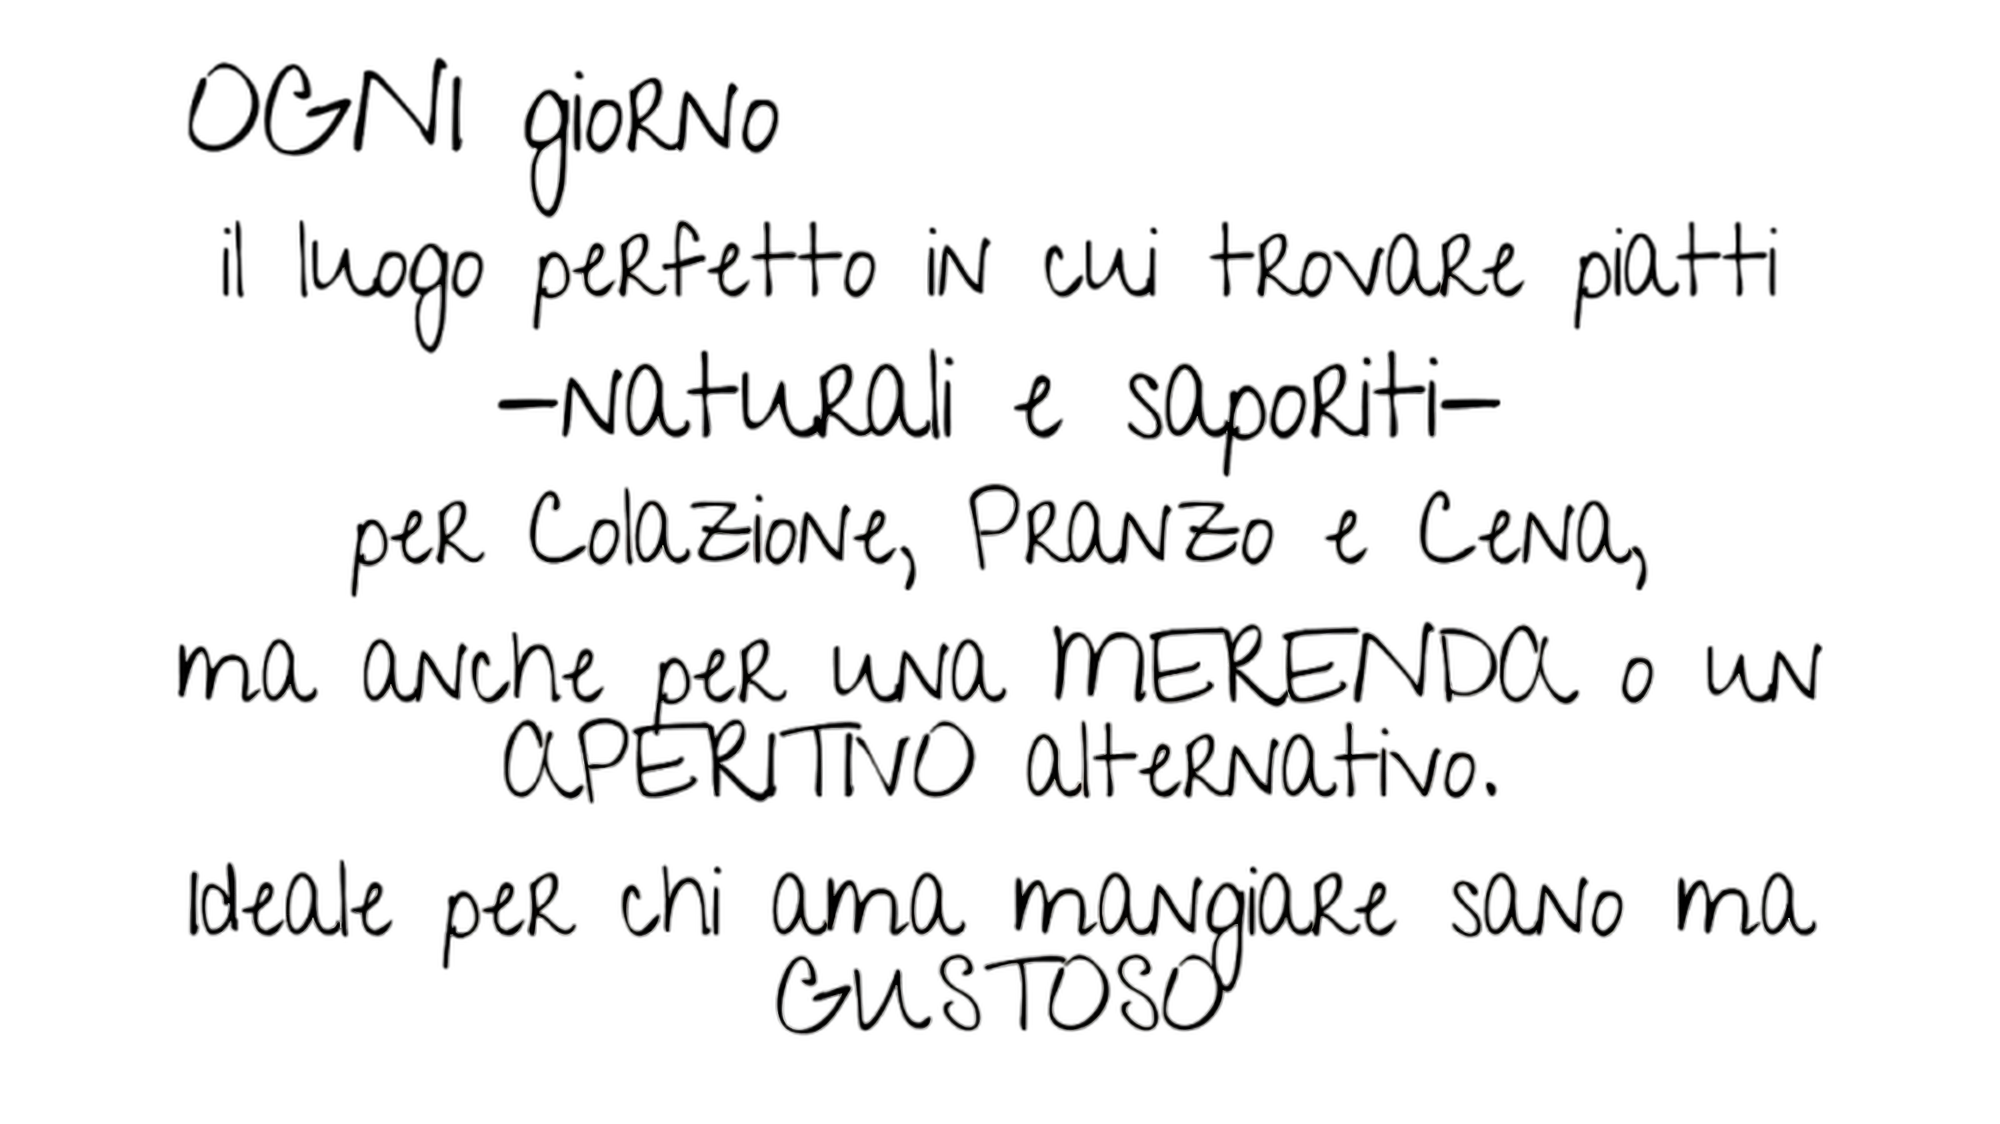 OGNI giorno
il luogo perfetto in cui trovare piatti
-naturali e saporiti-
per Colazione, Pranzo e Cena,
ma anche per una MERENDA o un
APERITIVO alternativo.
Ideale per chi ama mangiare sano ma
GUSTOSO